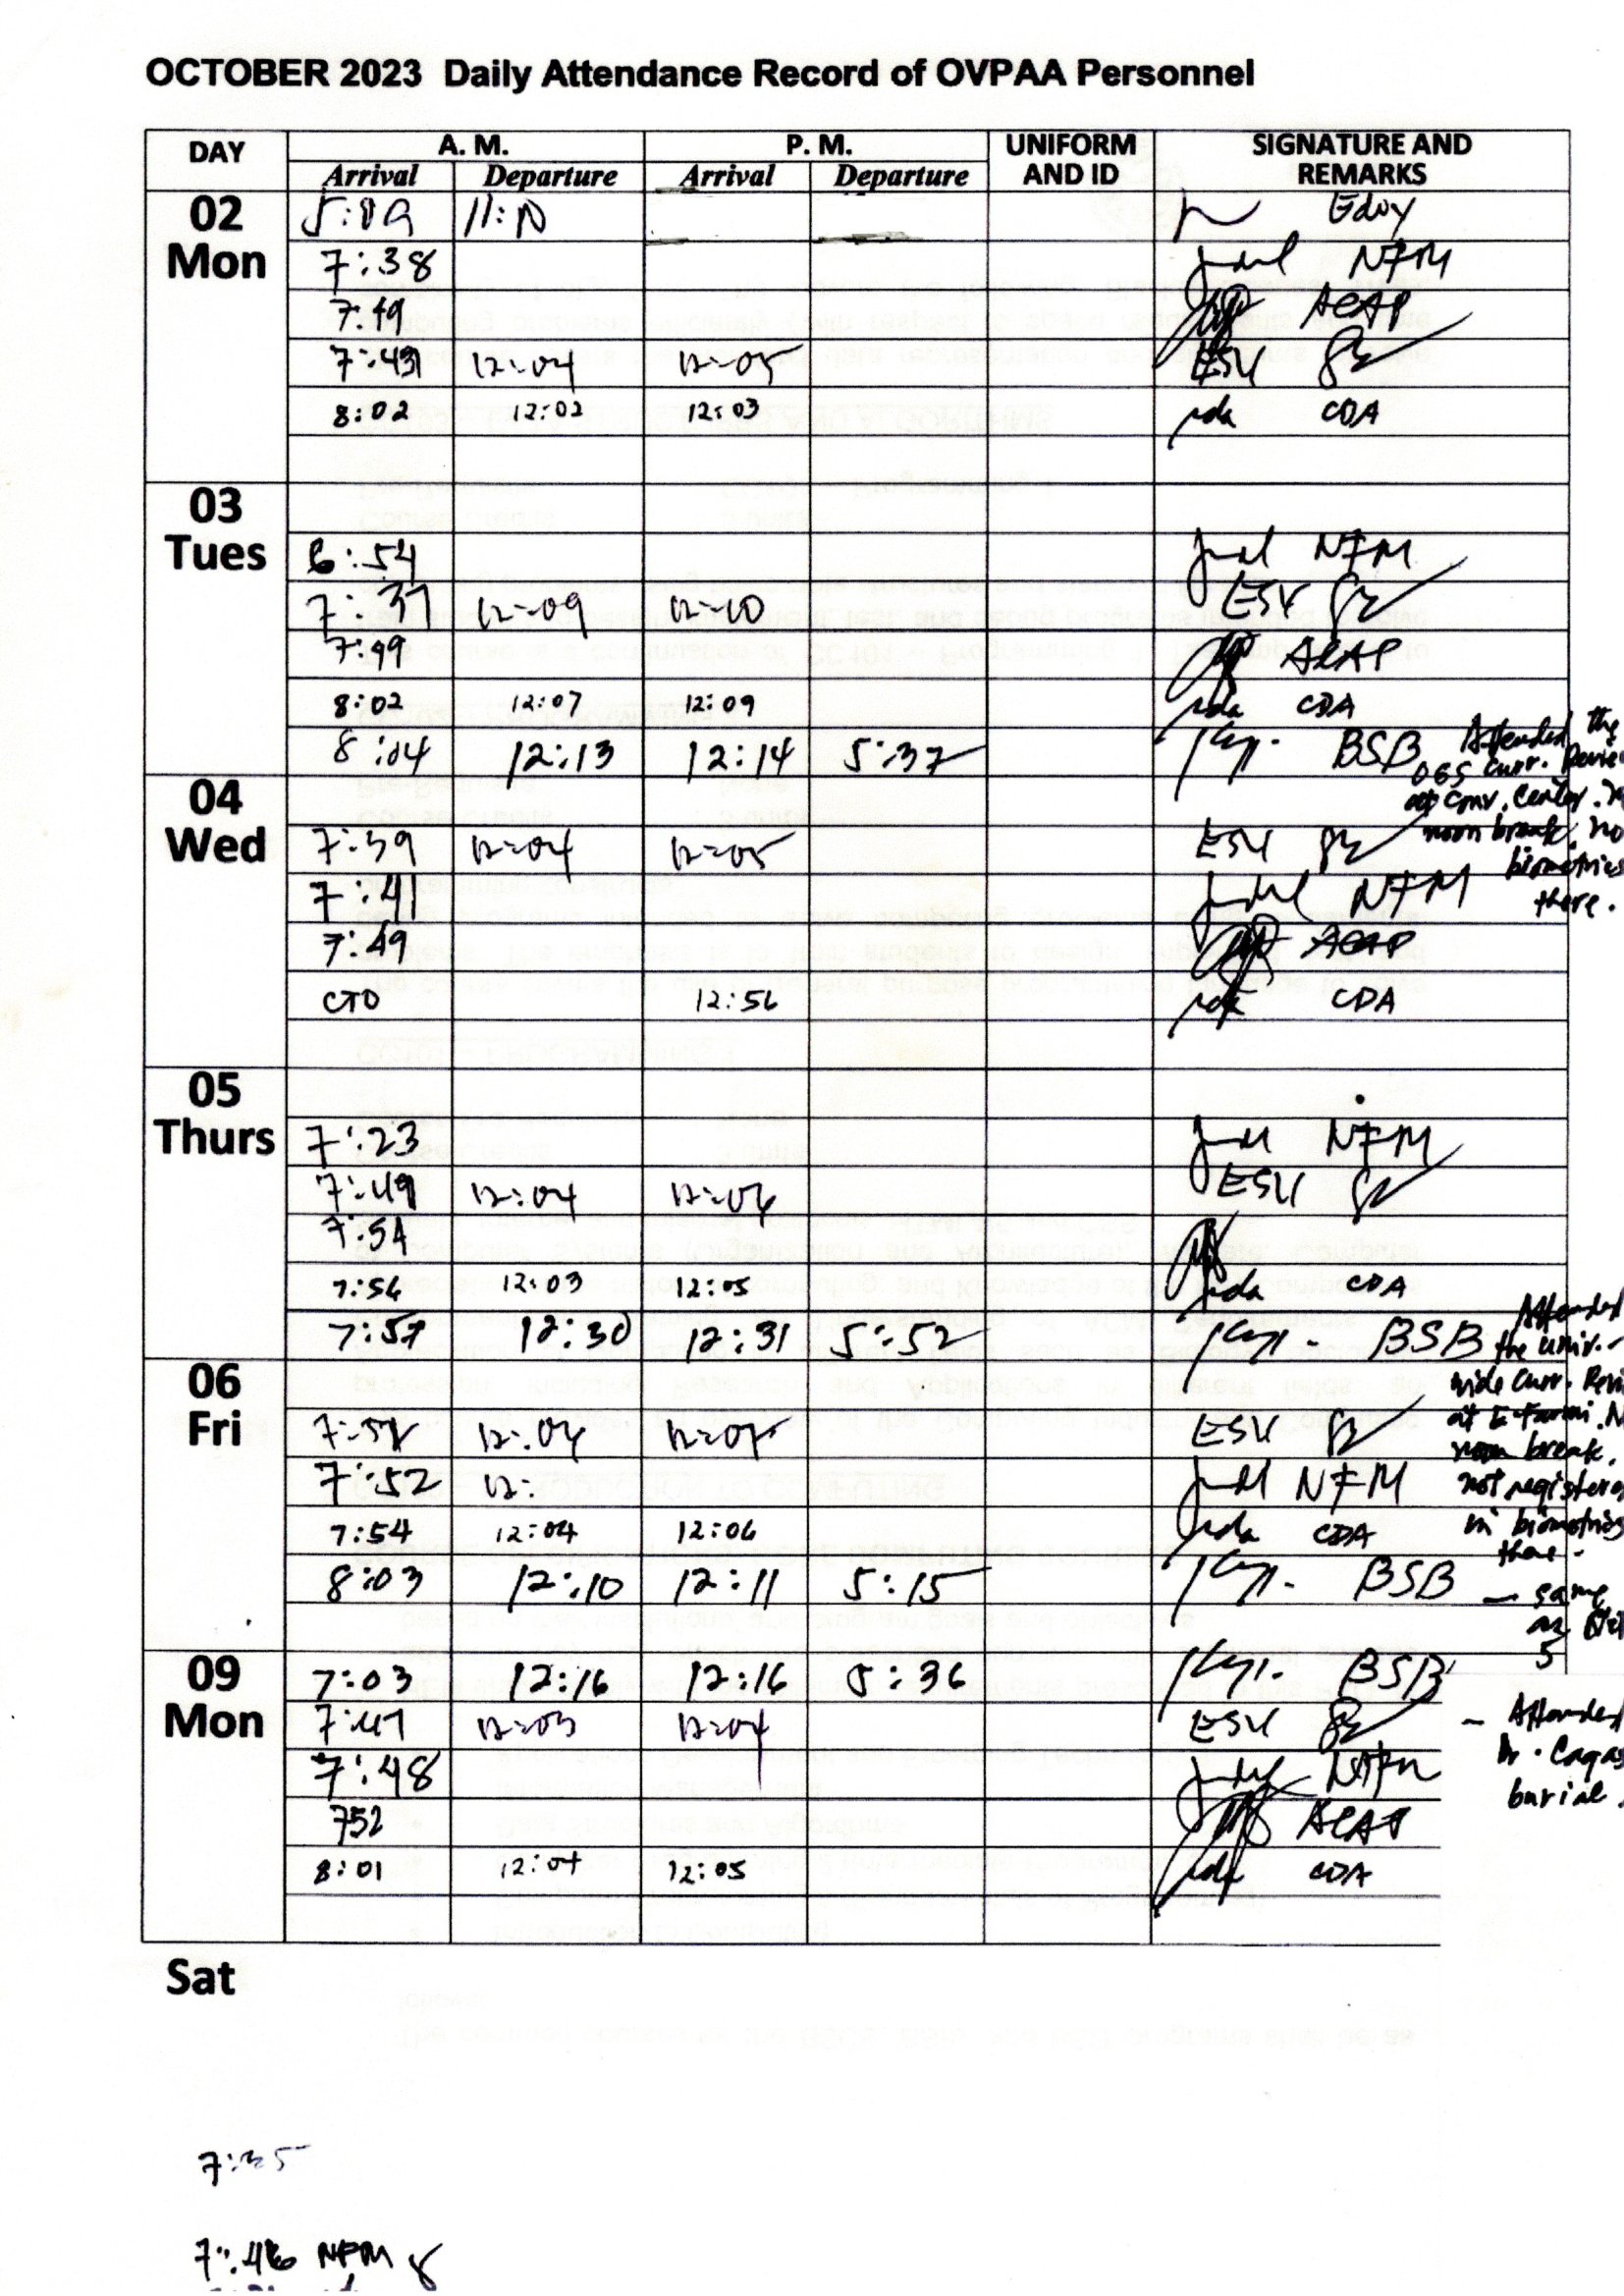 OCTOBER 2023 Daily Attendance Record of OVPAA Personnel
DAY A. M. P. M. UNIFORM AND ID SIGNATURE AND REMARKS
Arrival Departure Arrival Departure
02 Mon
Edoy
7:38 NFM
7:49 ACAP
7:43 12:04 12:05 ESU
8:02 12:02 12:03 CDA
03 Tues
6:54 NFM
7:37 12:09 12:10 ESU
7:49 ACAP
8:02 12:07 12:09 CDA
8:04 12:13 12:14 5:37 BSB Attended the
OGS Curr. Review
at Conv. Center. No
noon break, no
biometrics
there.
04 Wed
7:39 12:04 12:05 ESU
7:41 NFM
7:49 ACAP
CTO 12:56 CDA
05 Thurs
7:23 NFM
7:49 12:04 12:06 ESU
7:54
7:56 12:03 12:05 CDA
7:57 12:30 12:31 5:52 BSB Attended
the Univ.-
wide Curr. Revi
at E-Farmi. N
noon break,
not registered
in biometrics
there.
06 Fri
12:04 ESU
7:52 12: NFM
7:54 12:04 12:06 CDA
8:03 12:10 12:11 5:15 BSB — same
as Oct
5
09 Mon
7:03 12:16 12:16 5:36 BSB
7:47 12:03 12:04 ESU — Attended
Dr. Cagas
burial.
7:48 NFM
752 ACAP
8:01 12:04 12:05 CDA
Sat
7:35
7:46 NFM